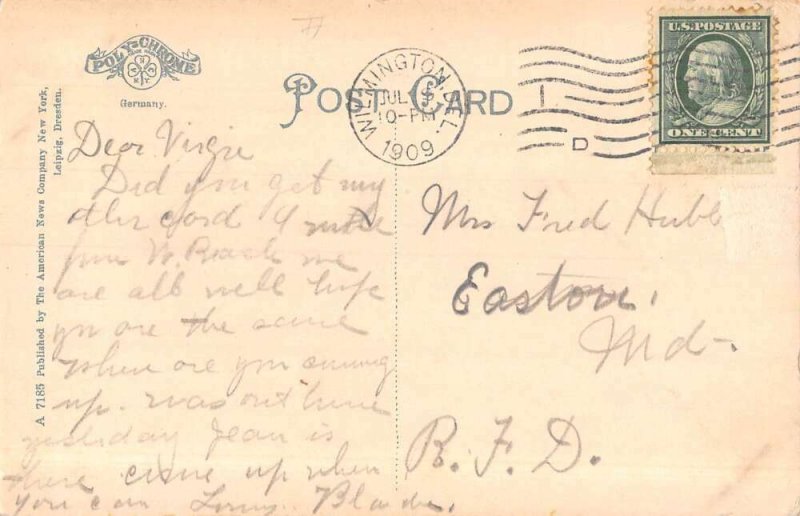 POLY-CHROME
Germany.
A 7185 Published by The American News Company New York,
Leipzig, Dresden.
POST CARD
WILMINGTON, DEL.
JUL
10-PM
1909
D
U.S. POSTAGE
ONE CENT
Dear Virgie
Did you get my
other card I
from Beach we
are all well hope
you are the same
when are you coming
up. was out home
yesterday Jean is
there come up when
you can
Mrs Fred Hubb
Easton,
Md-
R. F. D.